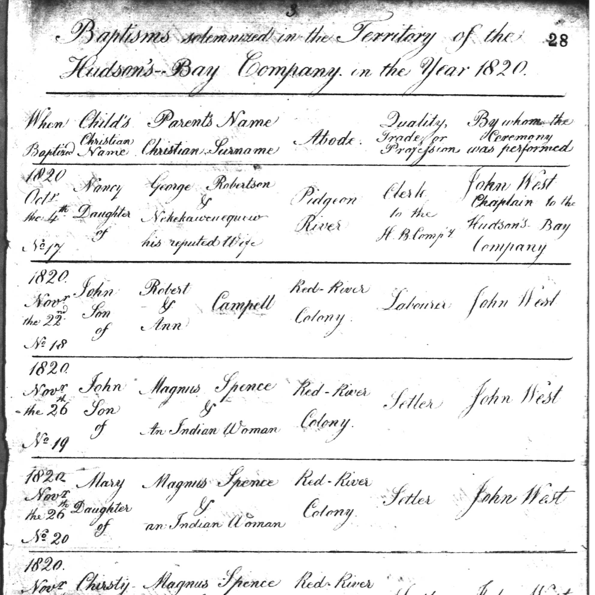 3
28
Baptisms solemnized in the Territory of the
Hudson's-Bay Company. in the Year 1820.
When Baptized
Child's Christian Name
Parents Name
Christian Surname
Abode.
Quality, Trade, or Profession
By whom the Ceremony was performed
1820
Octr
the 4th
No 17
Nancy
Daughter
of
George Robertson
&
his reputed Wife
Pidgeon
River
Clerk
to the
H. B. Compy
John West
Chaplain to the
Hudson's Bay
Company
1820.
Novr
the 22nd
No 18
John
Son
of
Robert
&
Ann
Campell
Red-River
Colony.
Labourer
John West
1820
Novr
the 26th
No 19
John
Son
of
Magnus Spence
&
An Indian Woman
Red-River
Colony.
Setler
John West
1820
Novr
the 26th
No 20
Mary
Daughter
of
Magnus Spence
&
an Indian Woman
Red-River
Colony.
Setler
John West
1820.
Novr
Chirsty
Magnus Spence
Red-River
John West